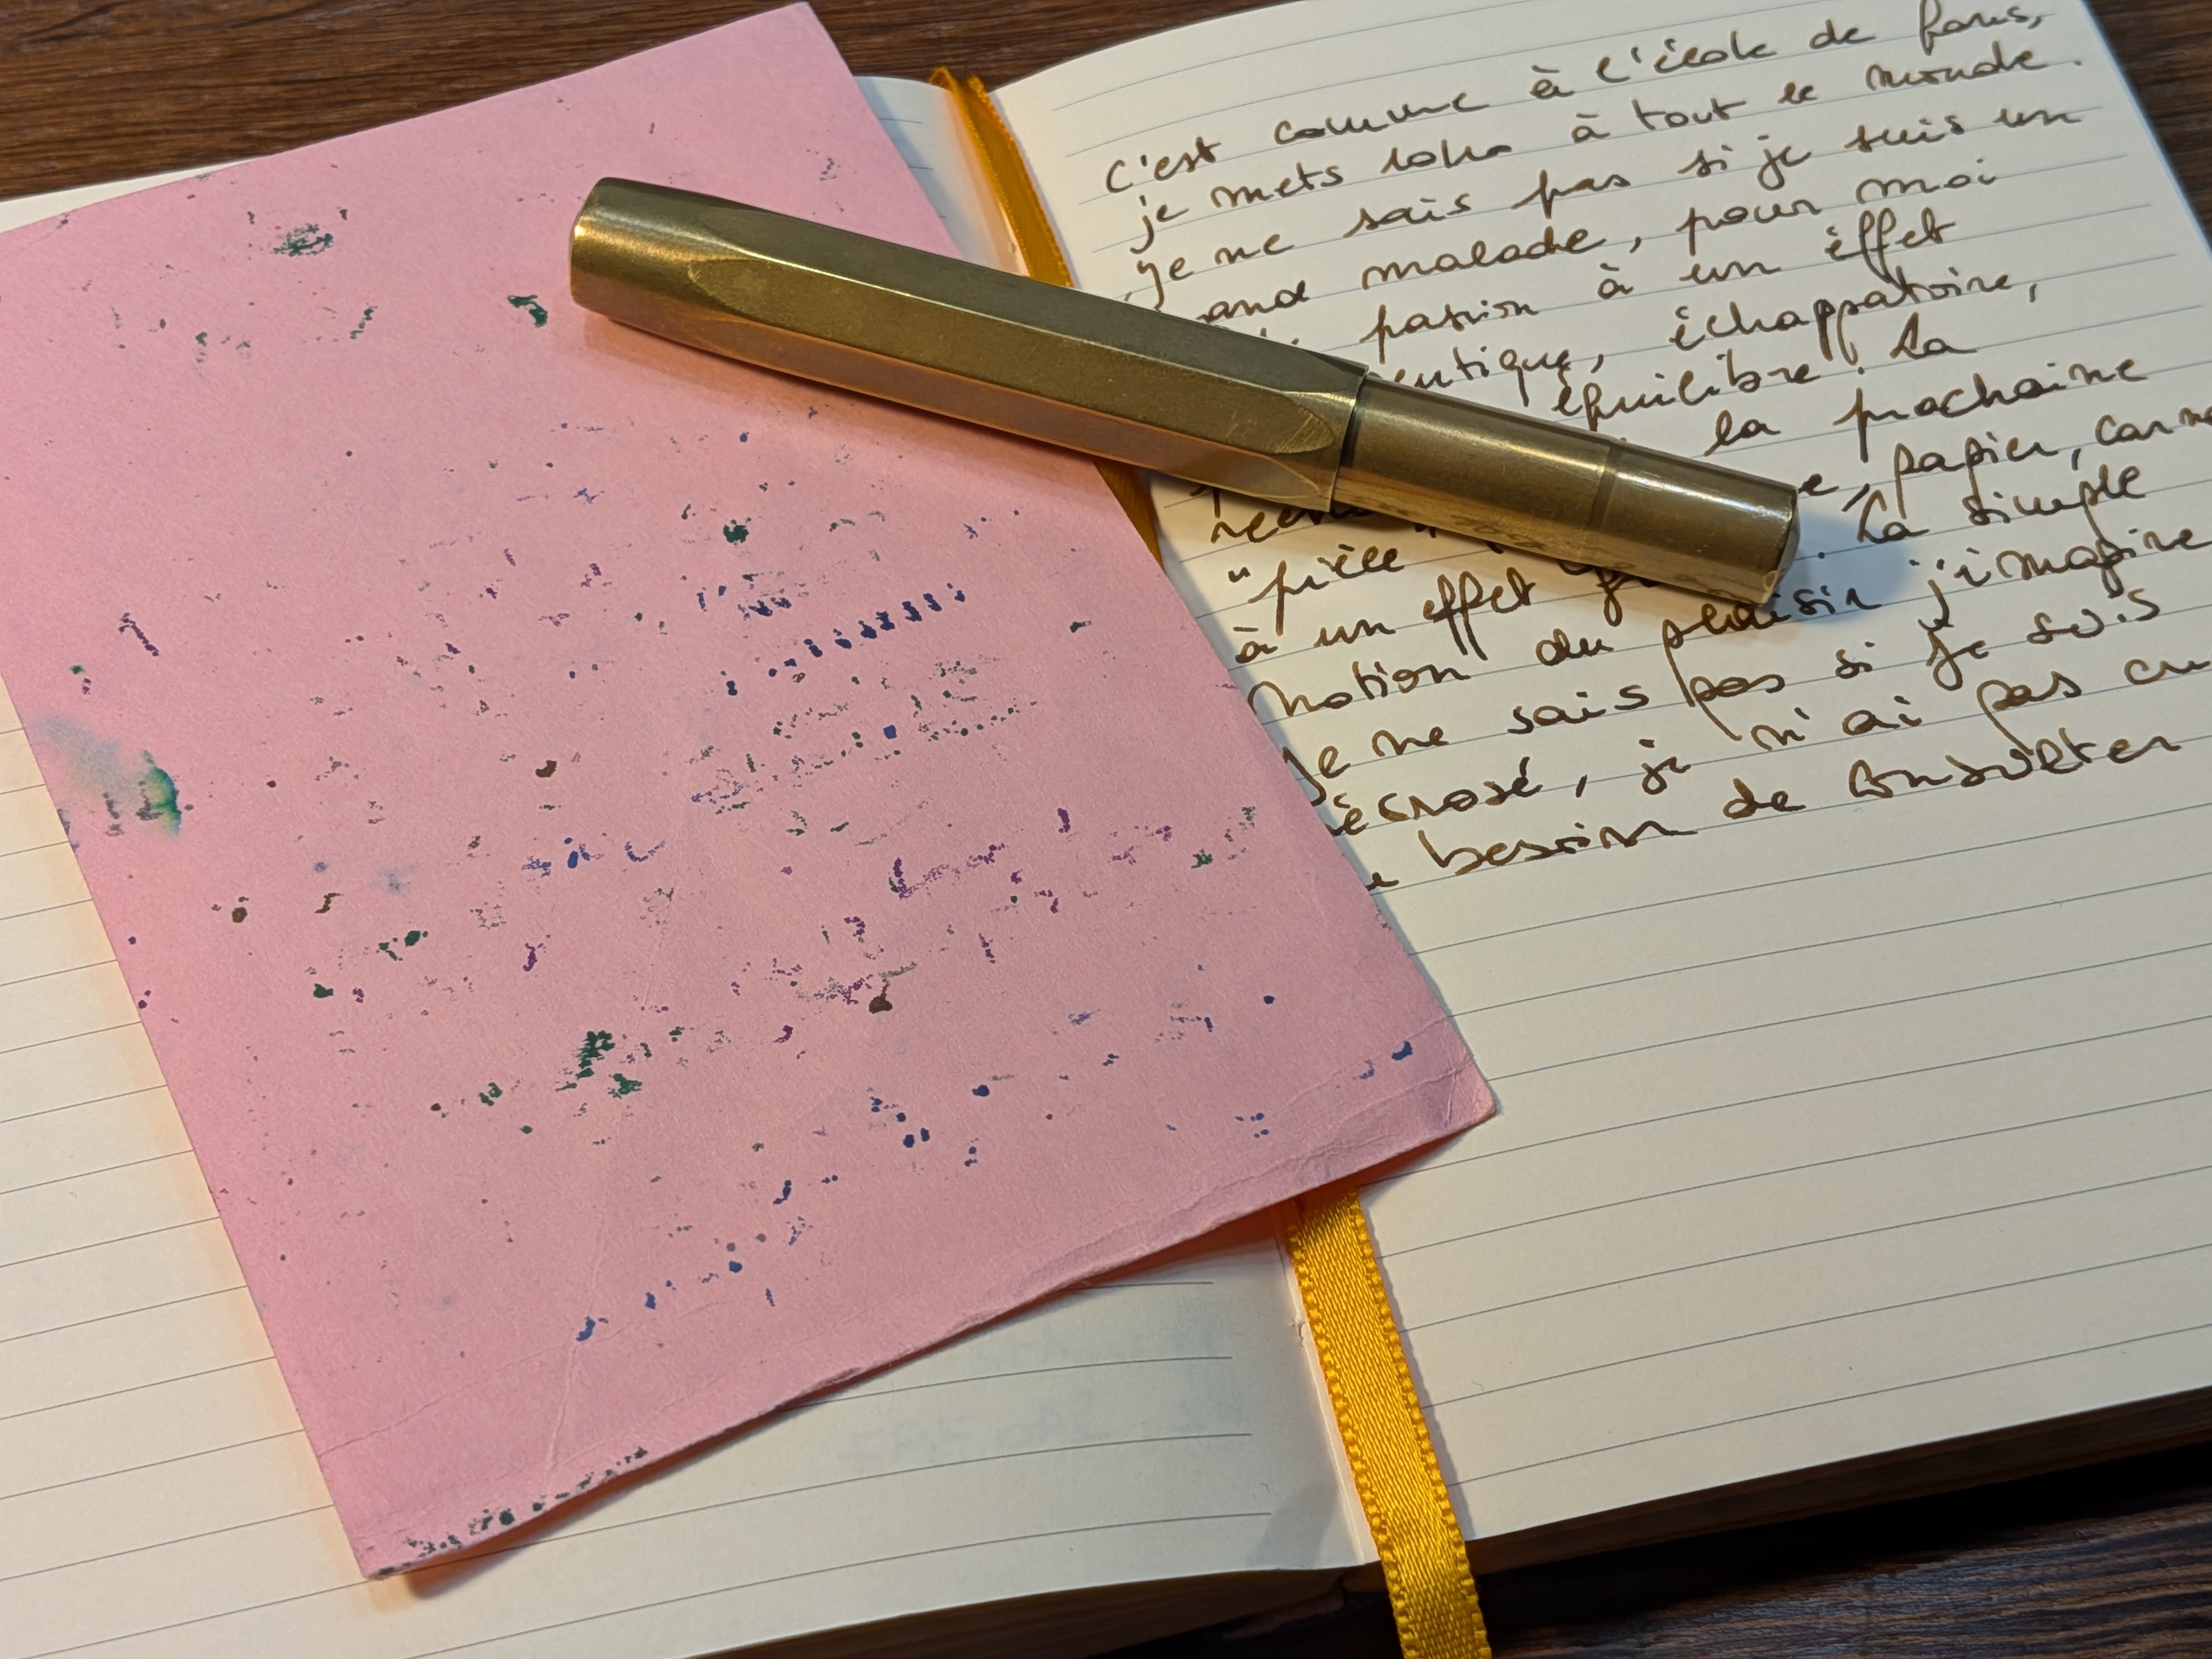 C'est comme à l'école de fans,
je mets 10/10 à tout le monde.
Je ne sais pas si je suis un
grand malade, pour moi
passion à un éffet
eutique, échappatoire,
équilibre. La
la prochaine
e, papier, carne
"pièce . La simple
à un effet
notion du plaisir j'imagine
Je ne sais pas si je suis
écrosé, je n'ai pas eu
besoin de consulter